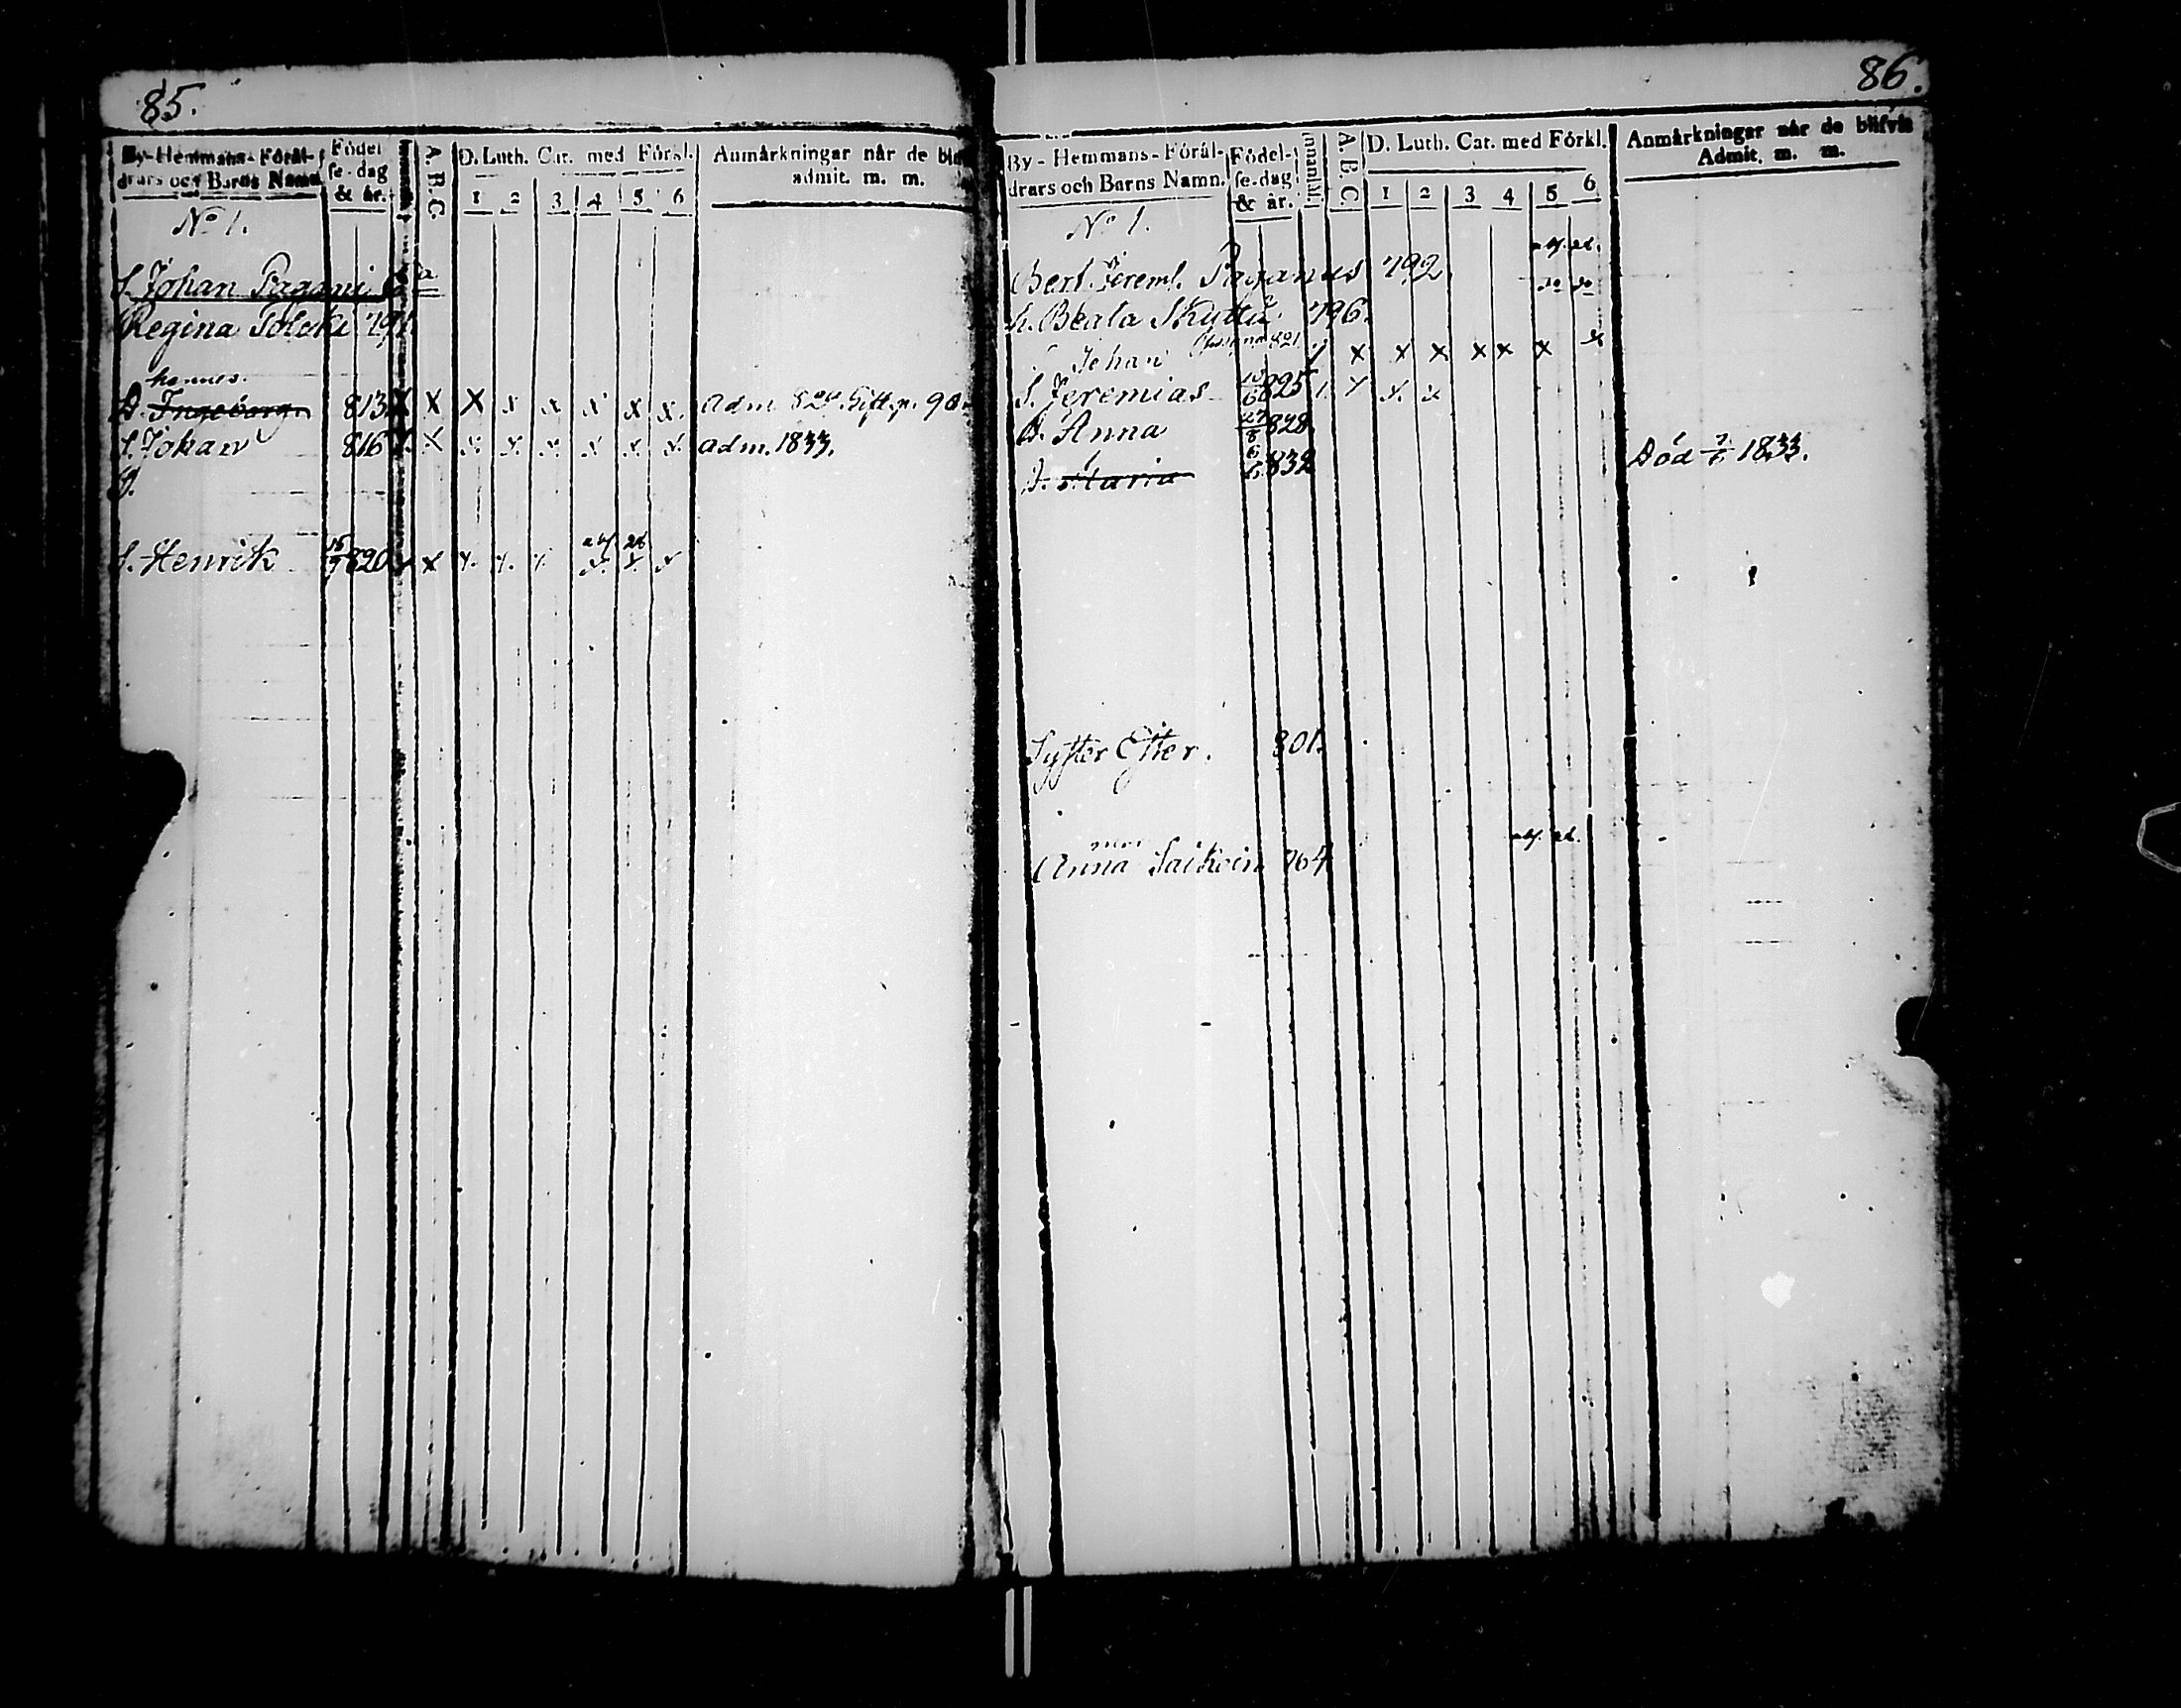 85.
By-Hemmans-Föräl-
drars och Barns Namn.
Födel
se-dag
& år.
A. B. C
D. Luth. Cat. med Förkl.
1 2 3 4 5 6
Anmärkningar når de
admit. m. m.
No 1.
S. Johan Pagani
Regina Tolcki 791
hennes
D. Ingeborg 813 x x x x x x x x. adm 829. Gift. p. 90.
S. Johan 816 x. x x. x. x. x. x. x. adm. 1833.
D.
S. Henrik 820 x x x. x. x. x. x. x
86.
By-Hemmans-Föräl-
drars och Barns Namn.
Födel-
se-dag
& år.
innantill.
A. B. C
D. Luth. Cat. med Förkl.
1 2 3 4 5 6
Anmärkningar når de blifvit
Admit. m. m.
No 1.
Bert. Jereml. Paganus 792
h. Beata Skyttä 796.
Johan 821 x x x x x x x
S. Jeremias 825
D. Anna 27/8 828.
D. Maria 832 Död 1833.
Syster Ester. 801.
mor
Anna Saikoin 764